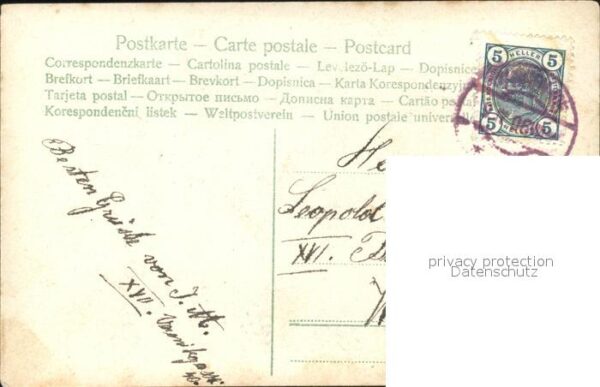 Postkarte – Carte postale – Postcard
Correspondenzkarte – Cartolina postale – Levelező-Lap – Dopisnice
Brefkort – Briefkaart – Brevkort – Dopisnica – Karta Korespondenzyjna
Tarjeta postal – Открытое письмо – Дописна карта – Cartão postal
Korespondenční lístek – Weltpostverein – Union postale universelle
5 HELLER 5
5 HELLER 5
He
Leopold
XVI.
Besten Grüße von J. M.
XVII.
privacy protection
Datenschutz